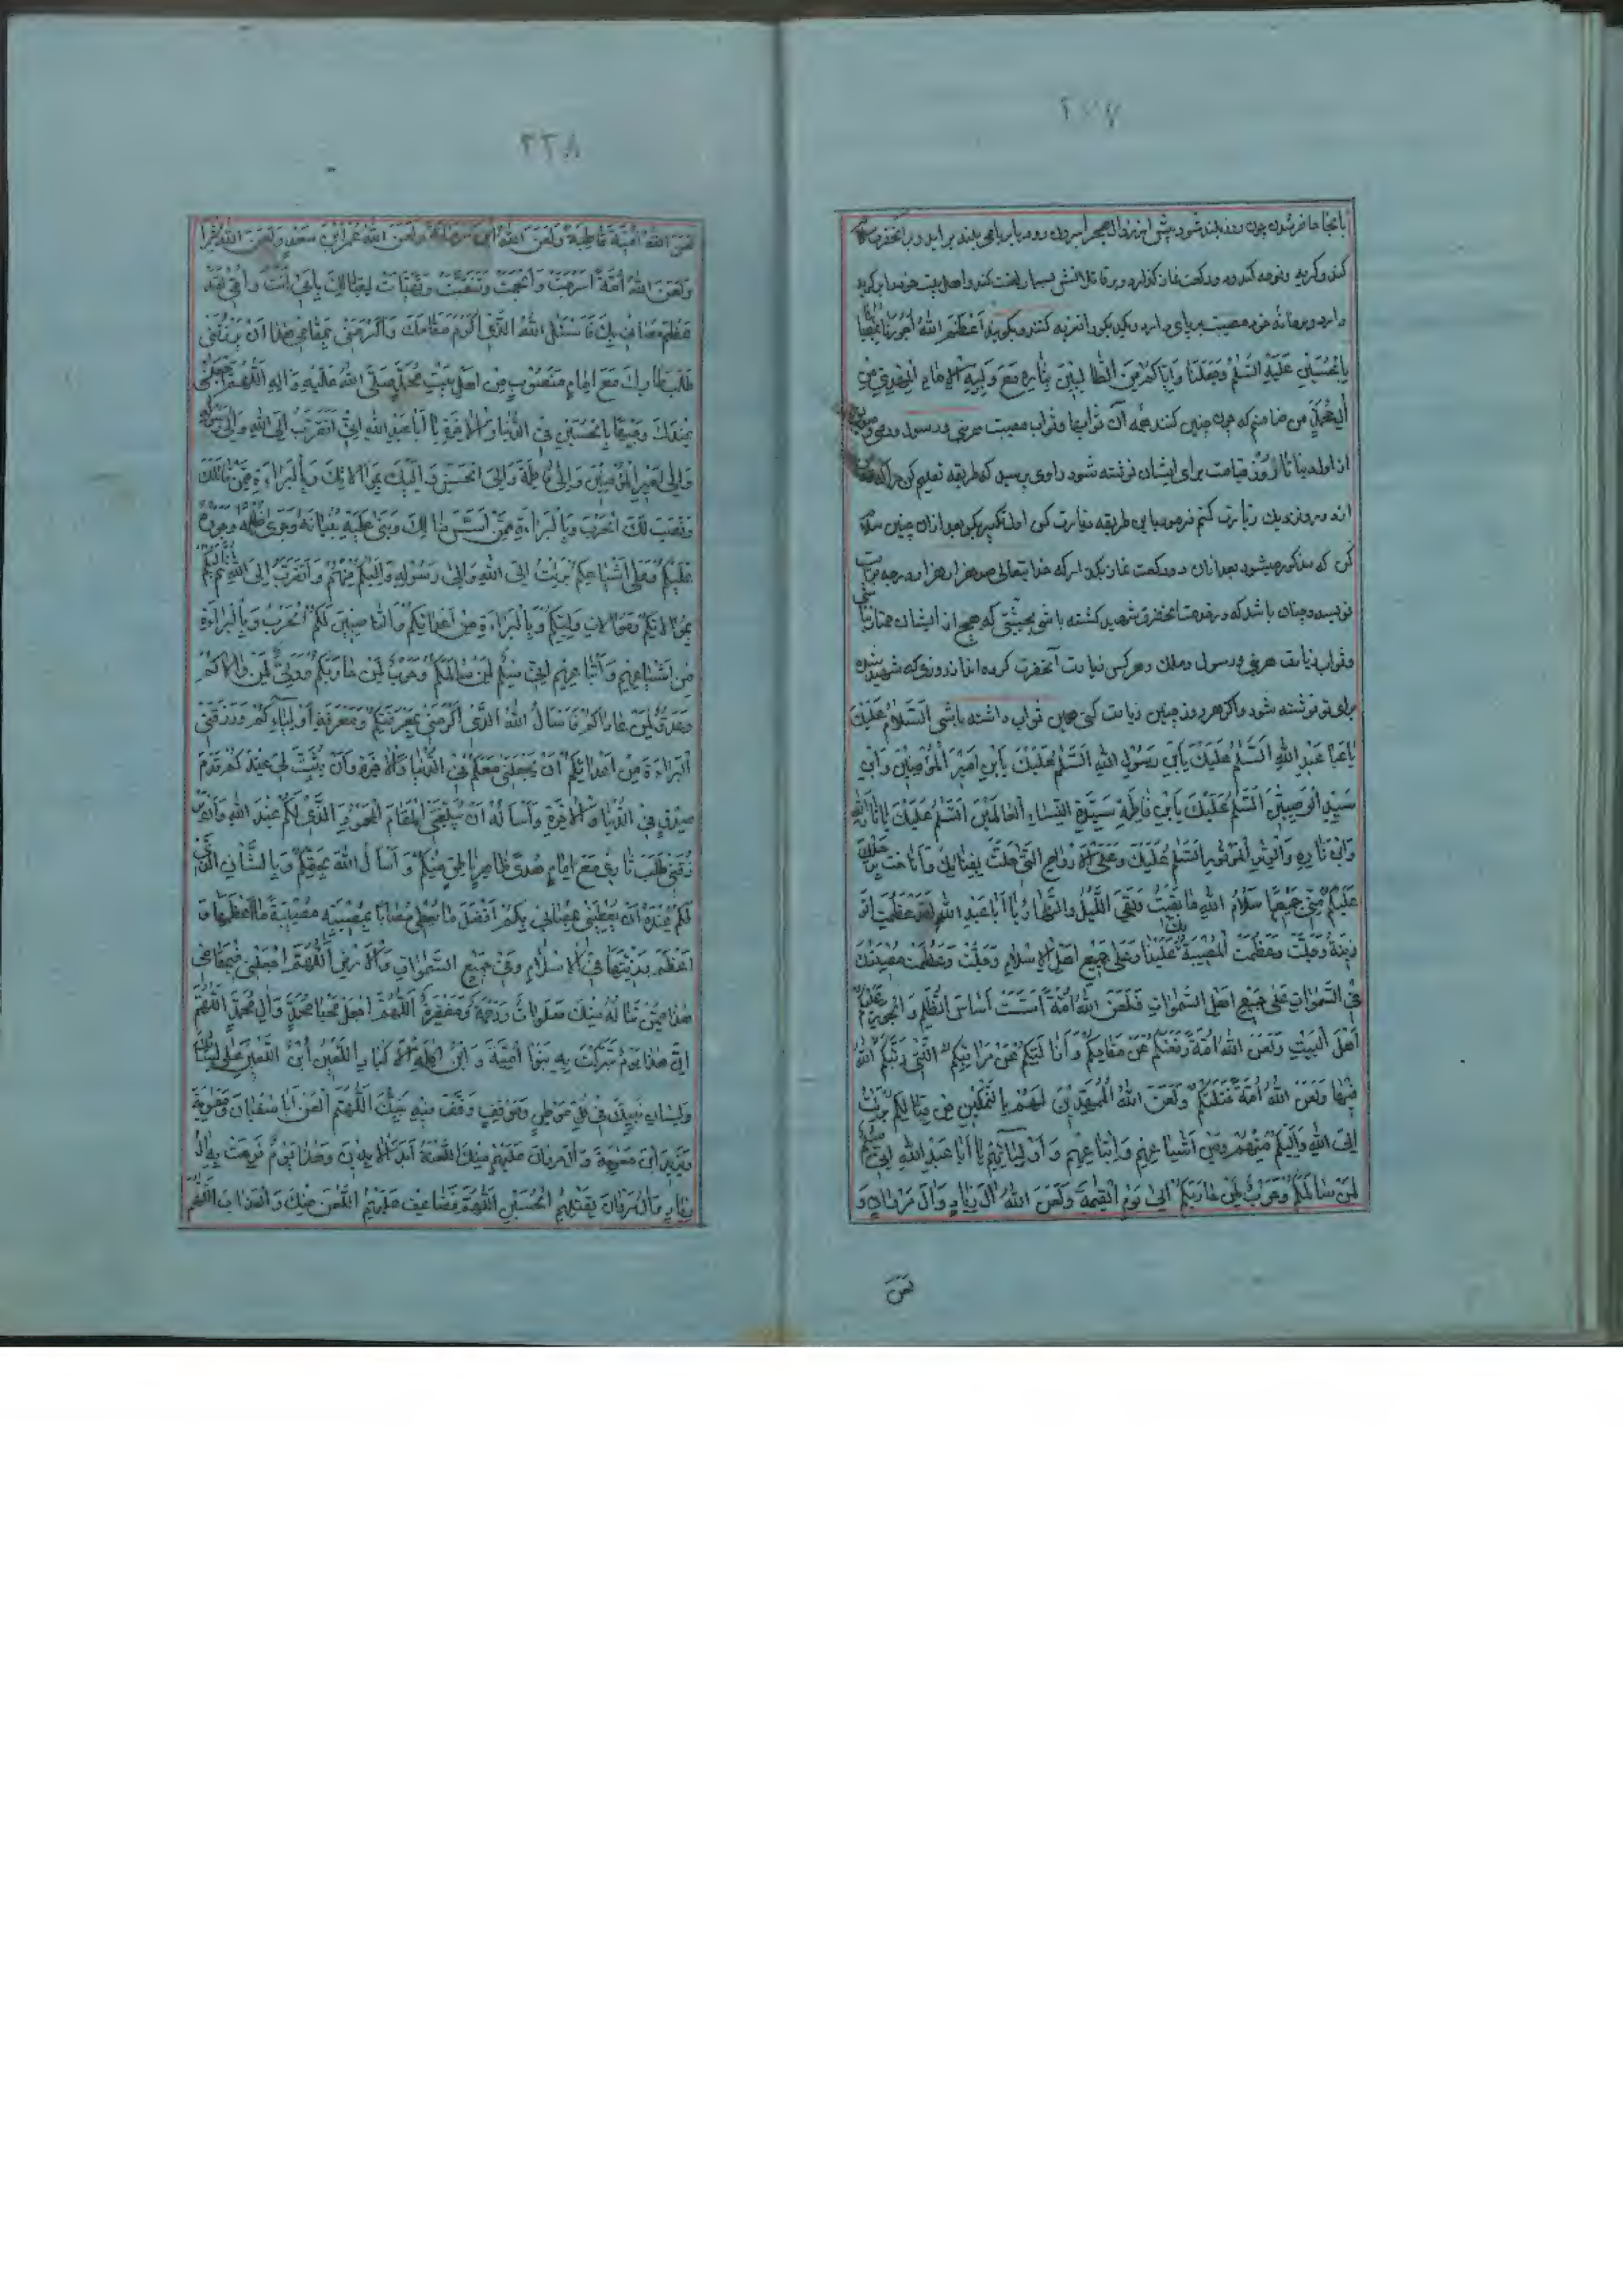 ۲۳۷
بانجا حاضر شدن چون روز بلند شود پیش از زوال بصحرا بیرون رود یا بر بامی بلند براید و بانحضرت سلام
کند و گریه و نوحه کند و دو رکعت نماز گذارد و بر قاتلانش بسیار لعنت کند و اهل بیت خود را گوید
و در خانه خود مصیبت برپای دارد و یکدیگر را تعزیه کنند و بگویند اَعْظَمَ اللهُ اُجُورَنا بِمُصابِنا
بِالْحُسَیْنِ عَلَیْهِ السَّلٰمُ وَجَعَلَنا وَاِیّاکُمْ مِنَ الطّالِبینَ بِثارِهِ مَعَ وَلِیِّهِ الْاِمامِ الْمَهْدِیِّ مِنْ
آلِ مُحَمَّدٍ من ضامنم که چون چنین کنند همه آن ثوابها و ثواب مصیبت هر نبی و رسول و وصی
از اول دنیا تا روز قیامت برای ایشان نوشته شود راوی پرسید که طریقه تعلیم کن مرا که
از دور و نزدیک زیارت کنم فرمود باین طریقه زیارت کن اول تکبیر بگو بعد ازان چنین سلام
کن که مذکور میشود بعد ازان دو رکعت نماز بکن که خدا یتعالی صد هزار هزار درجه برایت
نویسد و چنان باشد که در خدمت آنحضرت شهید کشته باشی بحیثیتی که هیچ از ایشان ممتاز نباشی
و ثواب زیارت هر نبی و رسول و ملک و هر کس زیارت آنحضرت کرده باشد از روزی که شهید شده
برای تو نوشته شود و اگر هر روز چنین زیارت کنی همین ثواب داشته باشی اَلسَّلامُ عَلَیْکَ
یا اَبا عَبْدِ اللهِ اَلسَّلٰمُ عَلَیْکَ یَابْنَ رَسُولِ اللهِ اَلسَّلٰمُ عَلَیْکَ یَابْنَ اَمیرِ الْمُؤْمِنینَ وَابْنَ
سَیِّدِ الْوَصِیّینَ اَلسَّلٰمُ عَلَیْکَ یَابْنَ فاطِمَةَ سَیِّدَةِ النِّساءِ الْعالَمینَ اَلسَّلٰمُ عَلَیْکَ یا ثارَ اللهِ
وَابْنَ ثارِهِ وَالْوِتْرَ الْمَوْتُورَ اَلسَّلٰمُ عَلَیْکَ وَعَلَی الْاَرْواحِ الَّتی حَلَّتْ بِفِنائِکَ وَاَناخَتْ بِرَحْلِکَ
عَلَیْکُمْ مِنّی جَمیعًا سَلامُ اللهِ ما بَقیتُ وَبَقِیَ اللَّیْلُ وَالنَّهارُ یا اَبا عَبْدِ اللهِ لَقَدْ عَظُمَتِ الرَّ
زِیَّةُ وَجَلَّتْ وَعَظُمَتِ الْمُصیبَةُ بِکَ عَلَیْنا وَعَلی جَمیعِ اَهْلِ الْاِسْلامِ وَجَلَّتْ وَعَظُمَتْ مُصیبَتُکَ
فِی السَّمٰواتِ عَلی جَمیعِ اَهْلِ السَّمٰواتِ فَلَعَنَ اللهُ اُمَّةً اَسَّسَتْ اَساسَ الظُّلْمِ وَالْجَوْرِ عَلَیْکُمْ
اَهْلَ الْبَیْتِ وَلَعَنَ اللهُ اُمَّةً دَفَعَتْکُمْ عَنْ مَقامِکُمْ وَاَزالَتْکُمْ عَنْ مَراتِبِکُمُ الَّتی رَتَّبَکُمُ اللهُ
فیها وَلَعَنَ اللهُ اُمَّةً قَتَلَتْکُمْ وَلَعَنَ اللهُ الْمُمَهِّدینَ لَهُمْ بِالتَّمْکینِ مِنْ قِتالِکُمْ بَرِئْتُ
اِلَی اللهِ وَاِلَیْکُمْ مِنْهُمْ وَمِنْ اَشْیاعِهِمْ وَاَتْباعِهِمْ وَاَوْلِیائِهِمْ یا اَبا عَبْدِ اللهِ اِنّی سِلْمٌ
لِمَنْ سالَمَکُمْ وَحَرْبٌ لِمَنْ حارَبَکُمْ اِلی یَوْمِ الْقِیٰمَةِ وَلَعَنَ اللهُ آلَ زِیادٍ وَآلَ مَرْوانَ وَ
لَعَنَ
۲۳۸
لَعَنَ اللهُ اُمَیَّةَ قاطِبَةً وَلَعَنَ اللهُ ابْنَ مَرْجانَةَ وَلَعَنَ اللهُ عُمَرَ ابْنَ سَعْدٍ وَلَعَنَ اللهُ شِمْرًا
وَلَعَنَ اللهُ اُمَّةً اَسْرَجَتْ وَاَلْجَمَتْ وَتَنَقَّبَتْ وَتَهَیَّاَتْ لِقِتالِکَ بِاَبی اَنْتَ وَاُمّی لَقَدْ
عَظُمَ مُصابی بِکَ فَاَسْئَلُ اللهَ الَّذی اَکْرَمَ مَقامَکَ وَاَکْرَمَنی بِمَقامی هٰذا اَنْ یَرْزُقَنی
طَلَبَ ثارِکَ مَعَ اِمامٍ مَنْصُوبٍ مِنْ اَهْلِ بَیْتِ مُحَمَّدٍ صَلَّی اللهُ عَلَیْهِ وَآلِهِ اَللّٰهُمَّ اجْعَلْنی
عِنْدَکَ وَجیهًا بِالْحُسَیْنِ فِی الدُّنْیا وَالْاٰخِرَةِ یا اَبا عَبْدِ اللهِ اِنّی اَتَقَرَّبُ اِلَی اللهِ وَاِلی رَسُولِهِ
وَاِلی اَمیرِ الْمُؤْمِنینَ وَاِلی فاطِمَةَ وَاِلَی الْحَسَنِ وَاِلَیْکَ بِمُوالاتِکَ وَبِالْبَراءَةِ مِمَّنْ قاتَلَکَ
وَنَصَبَ لَکَ الْحَرْبَ وَبِالْبَراءَةِ مِمَّنْ اَسَّسَ ذٰلِکَ وَبَنی عَلَیْهِ بُنْیانَهُ وَجَری ظُلْمُهُ وَجَوْرُهُ
عَلَیْکُمْ وَعَلی اَشْیاعِکُمْ بَرِئْتُ اِلَی اللهِ وَاِلی رَسُولِهِ وَاِلَیْکُمْ مِنْهُمْ وَاَتَقَرَّبُ اِلَی اللهِ ثُمَّ اِلَیْکُمْ
بِمُوالاتِکُمْ وَمُوالاتِ وَلِیِّکُمْ وَبِالْبَراءَةِ مِنْ اَعْدائِکُمْ وَالنّاصِبینَ لَکُمُ الْحَرْبَ وَبِالْبَراءَةِ
مِنْ اَشْیاعِهِمْ وَاَتْباعِهِمْ اِنّی سِلْمٌ لِمَنْ سالَمَکُمْ وَحَرْبٌ لِمَنْ حارَبَکُمْ وَوَلِیٌّ لِمَنْ والاکُمْ
وَعَدُوٌّ لِمَنْ عاداکُمْ فَاَسْاَلُ اللهَ الَّذی اَکْرَمَنی بِمَعْرِفَتِکُمْ وَمَعْرِفَةِ اَوْلِیائِکُمْ وَرَزَقَنِی
الْبَراءَةَ مِنْ اَعْدائِکُمْ اَنْ یَجْعَلَنی مَعَکُمْ فِی الدُّنْیا وَالْاٰخِرَةِ وَاَنْ یُثَبِّتَ لی عِنْدَکُمْ قَدَمَ
صِدْقٍ فِی الدُّنْیا وَالْاٰخِرَةِ وَاَسْاَلُهُ اَنْ یُبَلِّغَنِی الْمَقامَ الْمَحْمُودَ الَّذی لَکُمْ عِنْدَ اللهِ وَاَنْ یَرْ
زُقَنی طَلَبَ ثاری مَعَ اِمامٍ هُدًی ظاهِرٍ بِالْحَقِّ مِنْکُمْ وَاَسْاَلُ اللهَ بِحَقِّکُمْ وَبِالشَّاْنِ الَّذی
لَکُمْ عِنْدَهُ اَنْ یُعْطِیَنی بِمُصابی بِکُمْ اَفْضَلَ ما یُعْطی مُصابًا بِمُصیبَتِهِ مُصیبَةً ما اَعْظَمَها وَ
اَعْظَمَ رَزِیَّتَها فِی الْاِسْلامِ وَفی جَمیعِ السَّمٰواتِ وَالْاَرْضِ اَللّٰهُمَّ اجْعَلْنی فی مَقامی
هٰذا مِمَّنْ تَنالُهُ مِنْکَ صَلَواتٌ وَرَحْمَةٌ وَمَغْفِرَةٌ اَللّٰهُمَّ اجْعَلْ مَحْیایَ مَحْیا مُحَمَّدٍ وَآلِ مُحَمَّدٍ اَللّٰهُمَّ
اِنَّ هٰذا یَوْمٌ تَبَرَّکَتْ بِهِ بَنُوا اُمَیَّةَ وَابْنُ آکِلَةِ الْاَکْبادِ اللَّعینُ ابْنُ اللَّعینِ عَلی لِسانِکَ
وَلِسانِ نَبِیِّکَ فی کُلِّ مَوْطِنٍ وَمَوْقِفٍ وَقَفَ فیهِ نَبِیُّکَ اَللّٰهُمَّ الْعَنْ اَبا سُفْیانَ وَمُعٰوِیَةَ
وَیَزیدَ ابْنَ مُعٰوِیَةَ وَآلَ مَرْوانَ عَلَیْهِمْ مِنْکَ اللَّعْنَةُ اَبَدَ الْاٰبِدینَ وَهٰذا یَوْمٌ فَرِحَتْ بِهِ آلُ
زِیادٍ وَآلُ مَرْوانَ بِقَتْلِهِمُ الْحُسَیْنَ اَللّٰهُمَّ فَضاعِفْ عَلَیْهِمُ اللَّعْنَ مِنْکَ وَالْعَذابَ اَللّٰهُمَّ